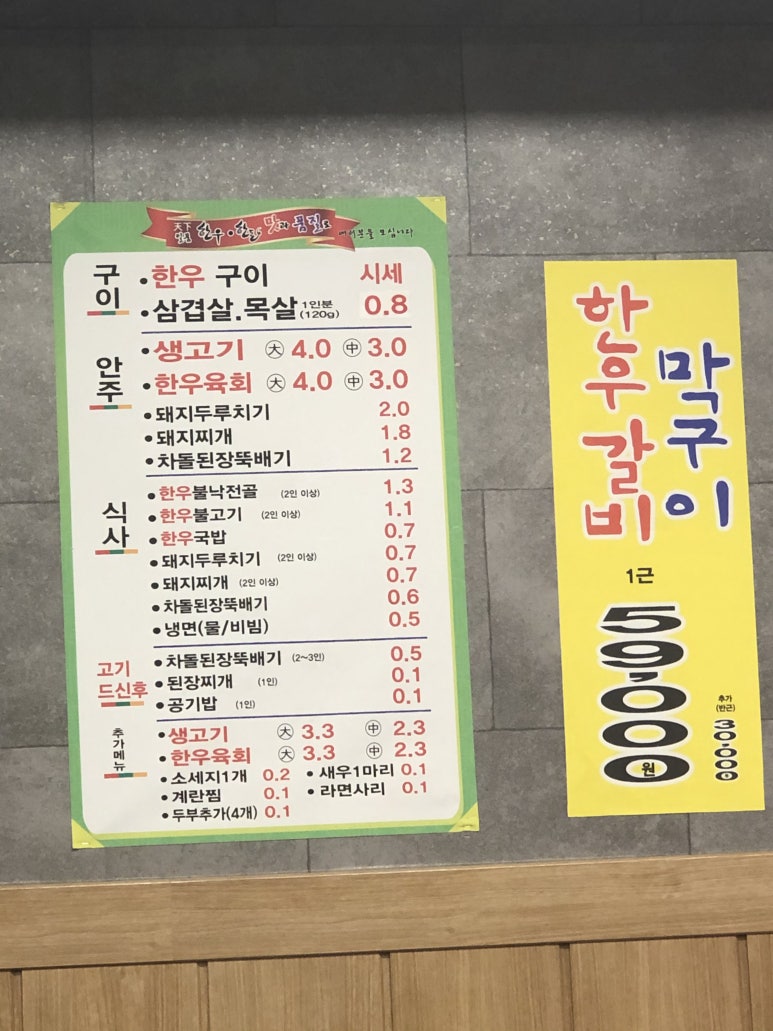 天下
일품 한우•한돈 맛과 품질로 여러분을 모십니다
구이
•한우 구이 시세
•삼겹살.목살 1인분(120g) 0.8
안주
•생고기 大 4.0 中 3.0
•한우육회 大 4.0 中 3.0
•돼지두루치기 2.0
•돼지찌개 1.8
•차돌된장뚝배기 1.2
식사
•한우불낙전골 (2인 이상) 1.3
•한우불고기 (2인 이상) 1.1
•한우국밥 0.7
•돼지두루치기 (2인 이상) 0.7
•돼지찌개 (2인 이상) 0.7
•차돌된장뚝배기 0.6
•냉면(물/비빔) 0.5
고기
드신후
•차돌된장뚝배기 (2~3인) 0.5
•된장찌개 (1인) 0.1
•공기밥 (1인) 0.1
추가메뉴
•생고기 大 3.3 中 2.3
•한우육회 大 3.3 中 2.3
•소세지1개 0.2 •새우1마리 0.1
•계란찜 0.1 •라면사리 0.1
•두부추가(4개) 0.1
한우갈비
막구이
1근
59,000원
추가
(반근)
30,000